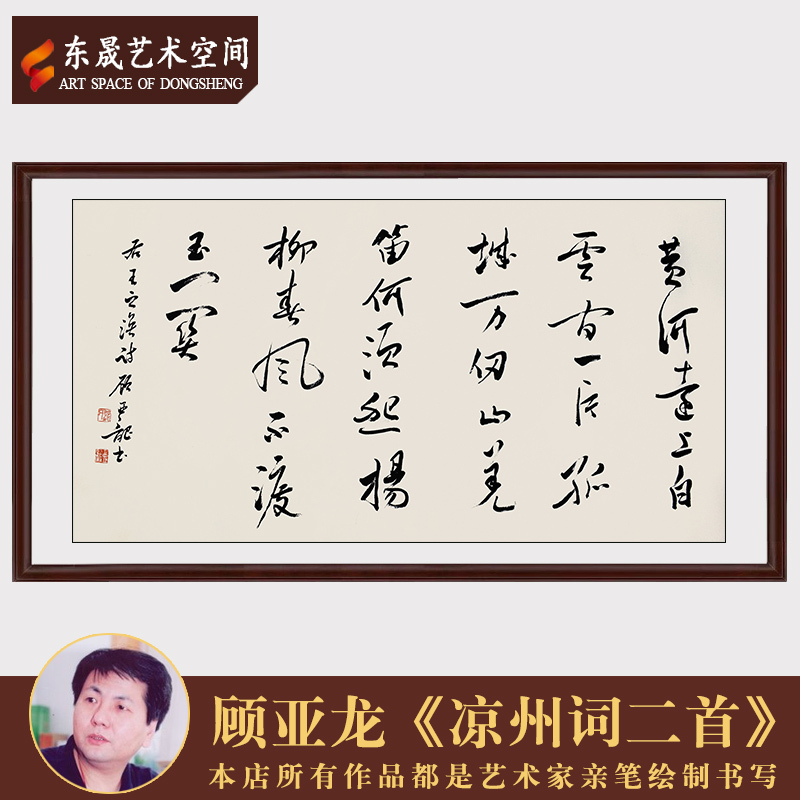 东晟艺术空间
ART SPACE OF DONGSHENG
黄河遠上白
雲间一片孤
城万仞山羌
笛何須怨楊
柳春風不渡
玉门関
右王之渙诗顾亚龍书
顾亚龙《凉州词二首》
本店所有作品都是艺术家亲笔绘制书写